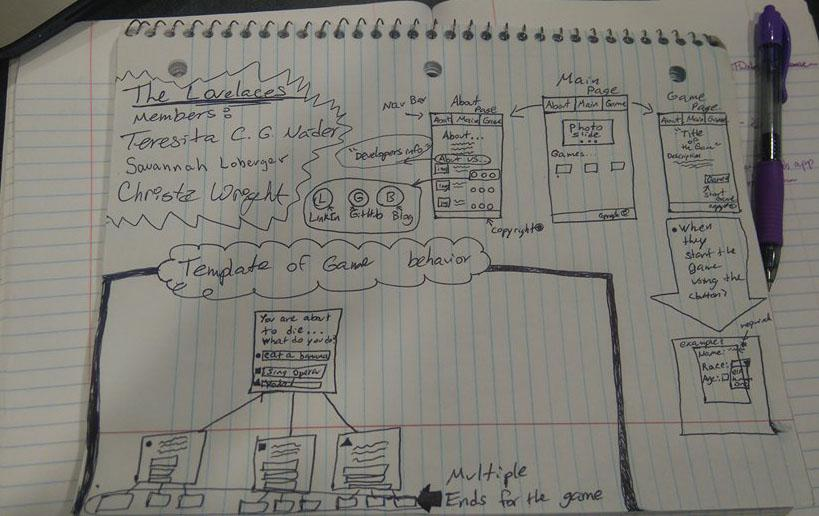 The Lovelaces
Members:
Teresita C. G. Nader
Savannah Loberger
Christa Wright
Nav Bar
About
Page
About Main Game
About...
"Developers info"
About us..
Img
L G B
LinkIn GitHub Blog
copyright©
Main
Page
About Main Game
Photo
slide
...
Games...
copyright©
Game
Page
About Main Game
"Title
of
the Game"
Description
Start
Game
• When
they
start the
game
using the
(button)
required
example:
Name:
Race:
Age:
Template of Game behavior
You are about
to die...
What do you do?
eat a banana
Sing Opera
Multiple
Ends for the game